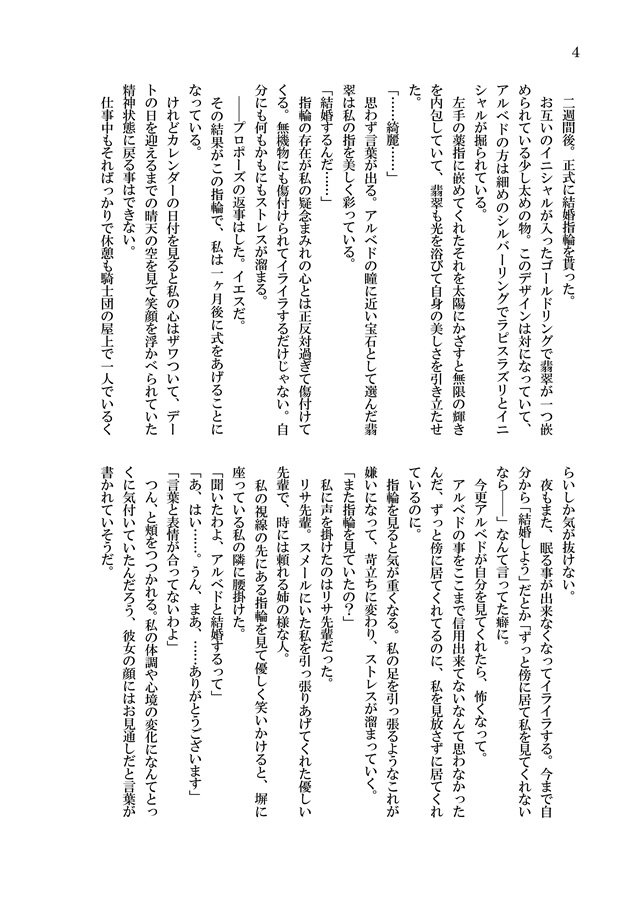 4
　二週間後。正式に結婚指輪を貰った。
　お互いのイニシャルが入ったゴールドリングで翡翠が一つ嵌
められている少し太めの物。このデザインは対になっていて、
アルベドの方は細めのシルバーリングでラピスラズリとイニ
シャルが掘られている。
　左手の薬指に嵌めてくれたそれを太陽にかざすと無限の輝き
を内包していて、翡翠も光を浴びて自身の美しさを引き立たせ
た。
「……綺麗……」
　思わず言葉が出る。アルベドの瞳に近い宝石として選んだ翡
翠は私の指を美しく彩っている。
「結婚するんだ……」
　指輪の存在が私の疑念まみれの心とは正反対過ぎて傷付けて
くる。無機物にも傷付けられてイライラするだけじゃない。自
分にも何もかもにもストレスが溜まる。
　――プロポーズの返事はした。イエスだ。
　その結果がこの指輪で、私は一ヶ月後に式をあげることに
なっている。
　けれどカレンダーの日付を見ると私の心はザワついて、デー
トの日を迎えるまでの晴天の空を見て笑顔を浮かべられていた
精神状態に戻る事はできない。
　仕事中もそればっかりで休憩も騎士団の屋上で一人でいるく
らいしか気が抜けない。
　夜もまた、眠る事が出来なくなってイライラする。今まで自
分から「結婚しよう」だとか「ずっと傍に居て私を見てくれない
なら――」なんて言ってた癖に。
　今更アルベドが自分を見てくれたら、怖くなって。
　アルベドの事をここまで信用出来てないなんて思わなかった
んだ、ずっと傍に居てくれてるのに、私を見放さずに居てくれ
ているのに。
　指輪を見ると気が重くなる。私の足を引っ張るようなこれが
嫌いになって、苛立ちに変わり、ストレスが溜まっていく。
「また指輪を見ていたの？」
　私に声を掛けたのはリサ先輩だった。
　リサ先輩。スメールにいた私を引っ張りあげてくれた優しい
先輩で、時には頼れる姉の様な人。
　私の視線の先にある指輪を見て優しく笑いかけると、塀に
座っている私の隣に腰掛けた。
「聞いたわよ、アルベドと結婚するって」
「あ、はい……。うん、まあ、……ありがとうございます」
「言葉と表情が合ってないわよ」
　つん、と頬をつつかれる。私の体調や心境の変化になんてとっ
くに気付いていたんだろう、彼女の顔にはお見通しだと言葉が
書かれていそうだ。